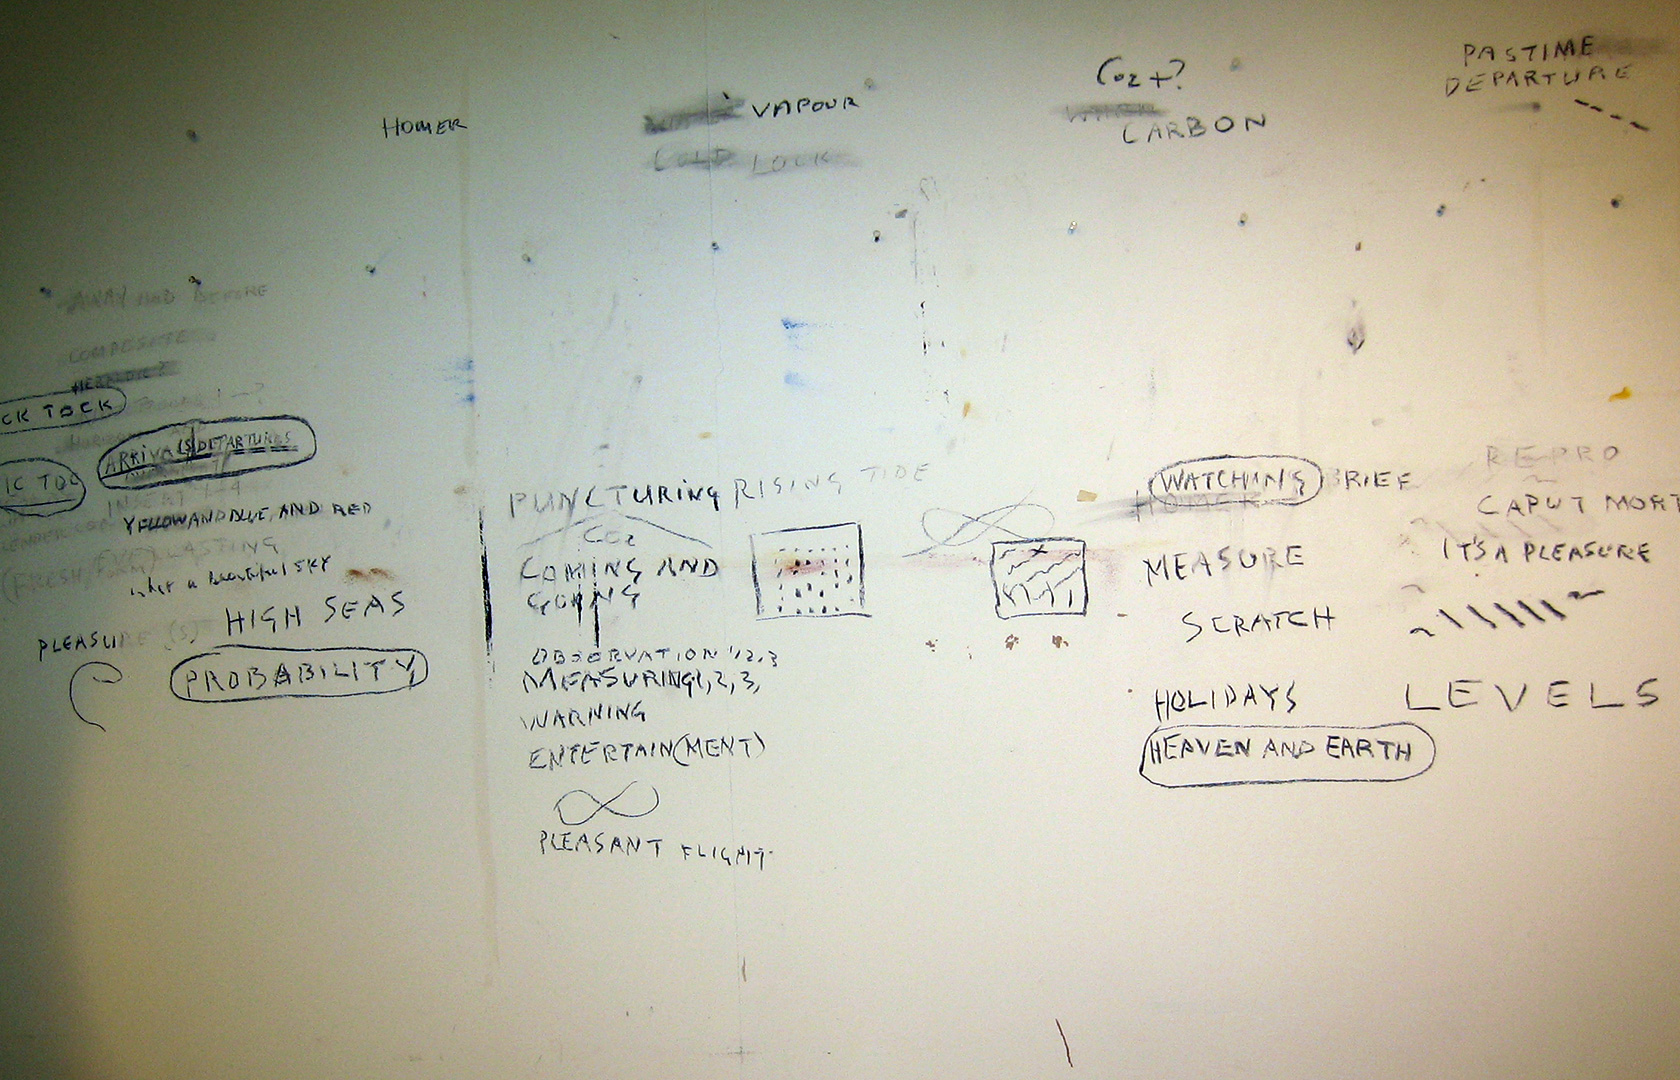 PASTIME
DEPARTURE
CO2 +?
CARBON
VAPOUR
LOCK
HOMER
AWAY AND BEFORE
COMPOSITE
CK TOCK
ARRIVAL(S) DEPARTURES
IC TOC
INSERT 1-4
YELLOW AND BLUE, AND RED
LASTING
what a beautiful SKY
HIGH SEAS
PLEASURE (S)
PROBABILITY
PUNCTURING RISING TIDE
CO2
COMING AND
GOING
OBSERVATION 1,2,3
MEASURING 1, 2, 3,
WARNING
ENTERTAIN(MENT)
PLEASANT FLIGHT
WATCHING BRIEF
HOMER
MEASURE
SCRATCH
HOLIDAYS
HEAVEN AND EARTH
REPRO
CAPUT MORT
IT'S A PLEASURE
LEVELS